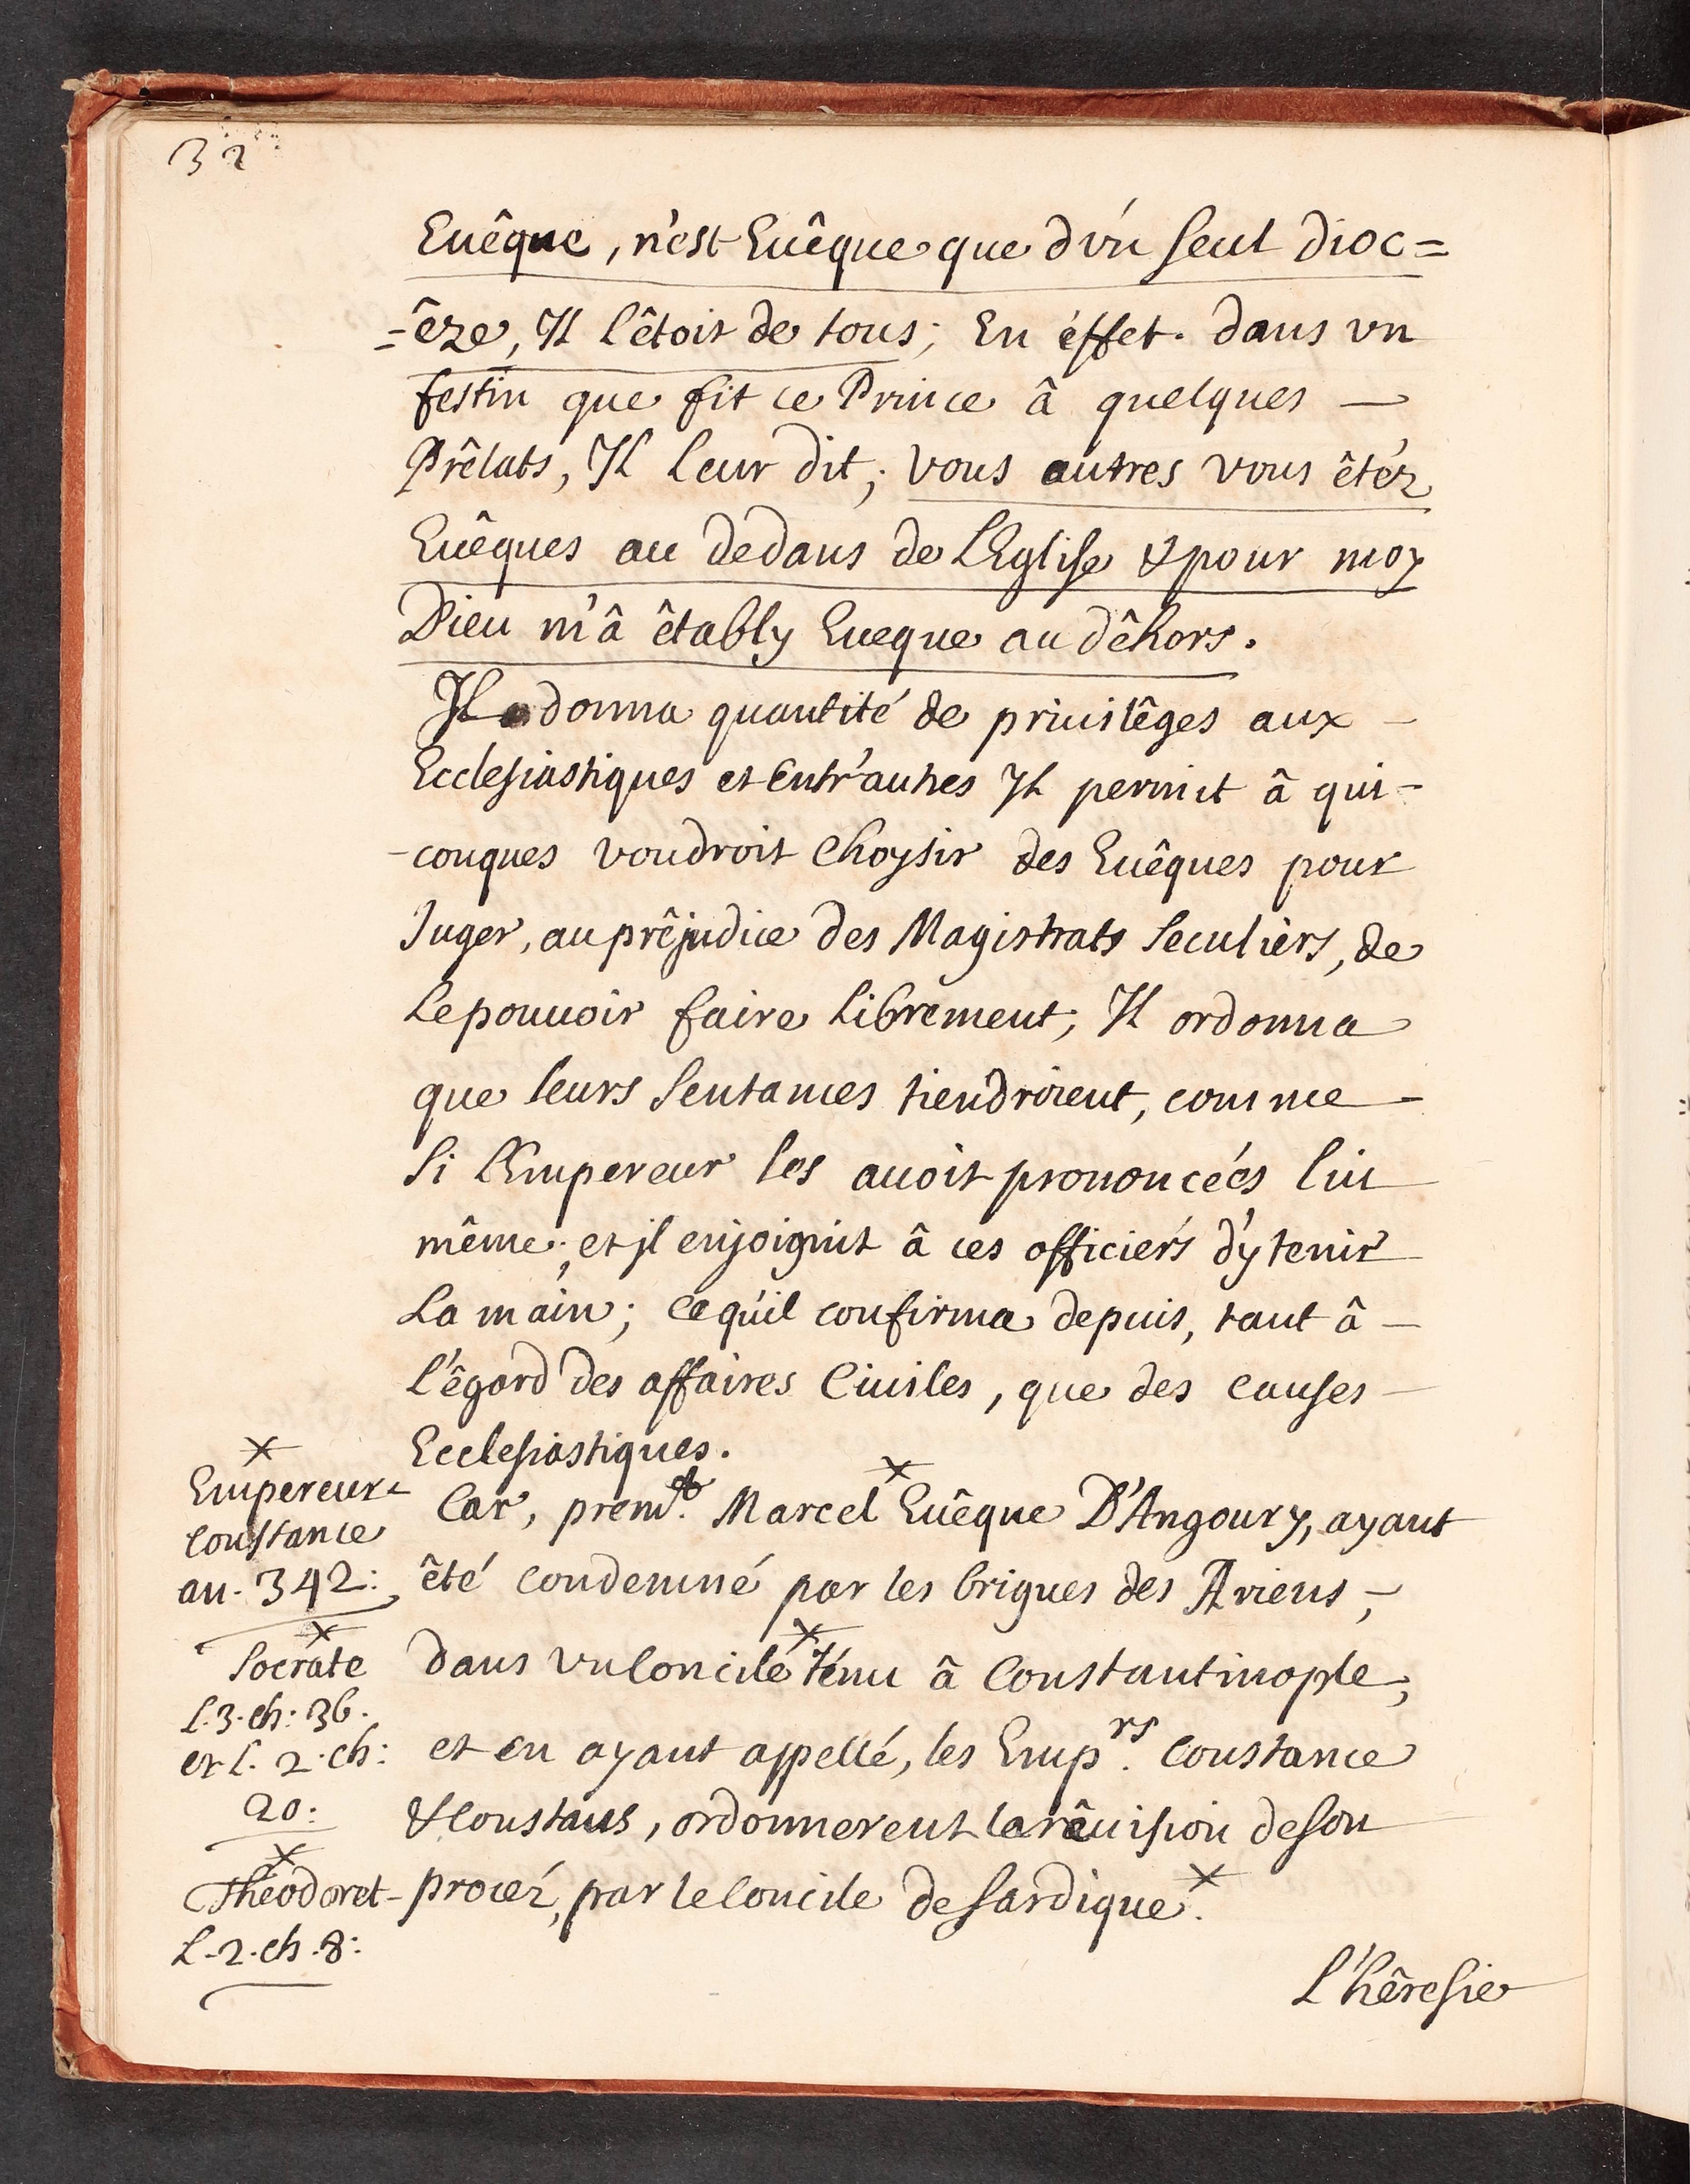 32
Euêque, n'est Euêque que d'vn seul dioc=
=êze, Il l'êtoit de tous; En éffet. dans vn
festin que fit ce Prince â quelques —
Prêlats, Il leur dit; vous autres vous êtéz
Euêques au dedans de L'Eglise & pour moy
Dieu m'â êtably Eueque au dêhors.
Il donna quantité de priuilêges aux —
Ecclesiastiques et Entr'autres Il permit â qui-
-conques voudroit Choysir des Euêques pour
Juger, au prêjudice des Magistrats Seculiérs, de
Le pouuoir faire Librement; Il ordonna
que leurs Sentances tiendroient, comme —
Si L'Empereur les auoit prononcéés lui
même; et jl enjoignit â ces officiérs d'y tenir
La main; Ce qu'il confirma depuis, tant â —
l'êgard des affaires Ciuiles, que des causes —
Ecclesiastiques.
Car, premt. Marcel × Euêque D'Angoury, ayant
êté Condemné par les brigues des Ariens,
dans vn Concile × Ténu â Constantinople,
et en ayant appellé, les Emprs. Constance
& Constans, ordonnerent la rêuision de son
procéz, par le Concile de Sardique. ×
L'hêresie
×
Empereur
Constance
an. 342:
×
Socrate
L. 3. ch: 36.
et L. 2. ch:
20:
×
Théodoret
L. 2. ch. 8: